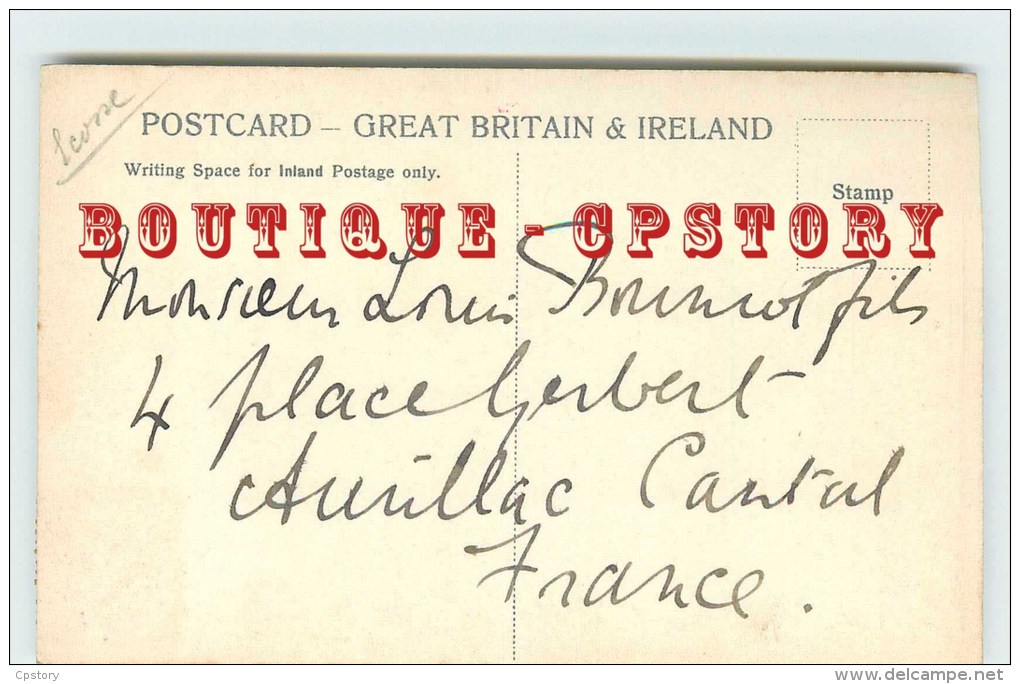 Ecosse
POSTCARD – GREAT BRITAIN & IRELAND
Writing Space for Inland Postage only.
Stamp
BOUTIQUE - CPSTORY
Monsieur Louis fils
4 place Gerbert
Aurillac Cantal
France.
Cpstory
delcampe.net